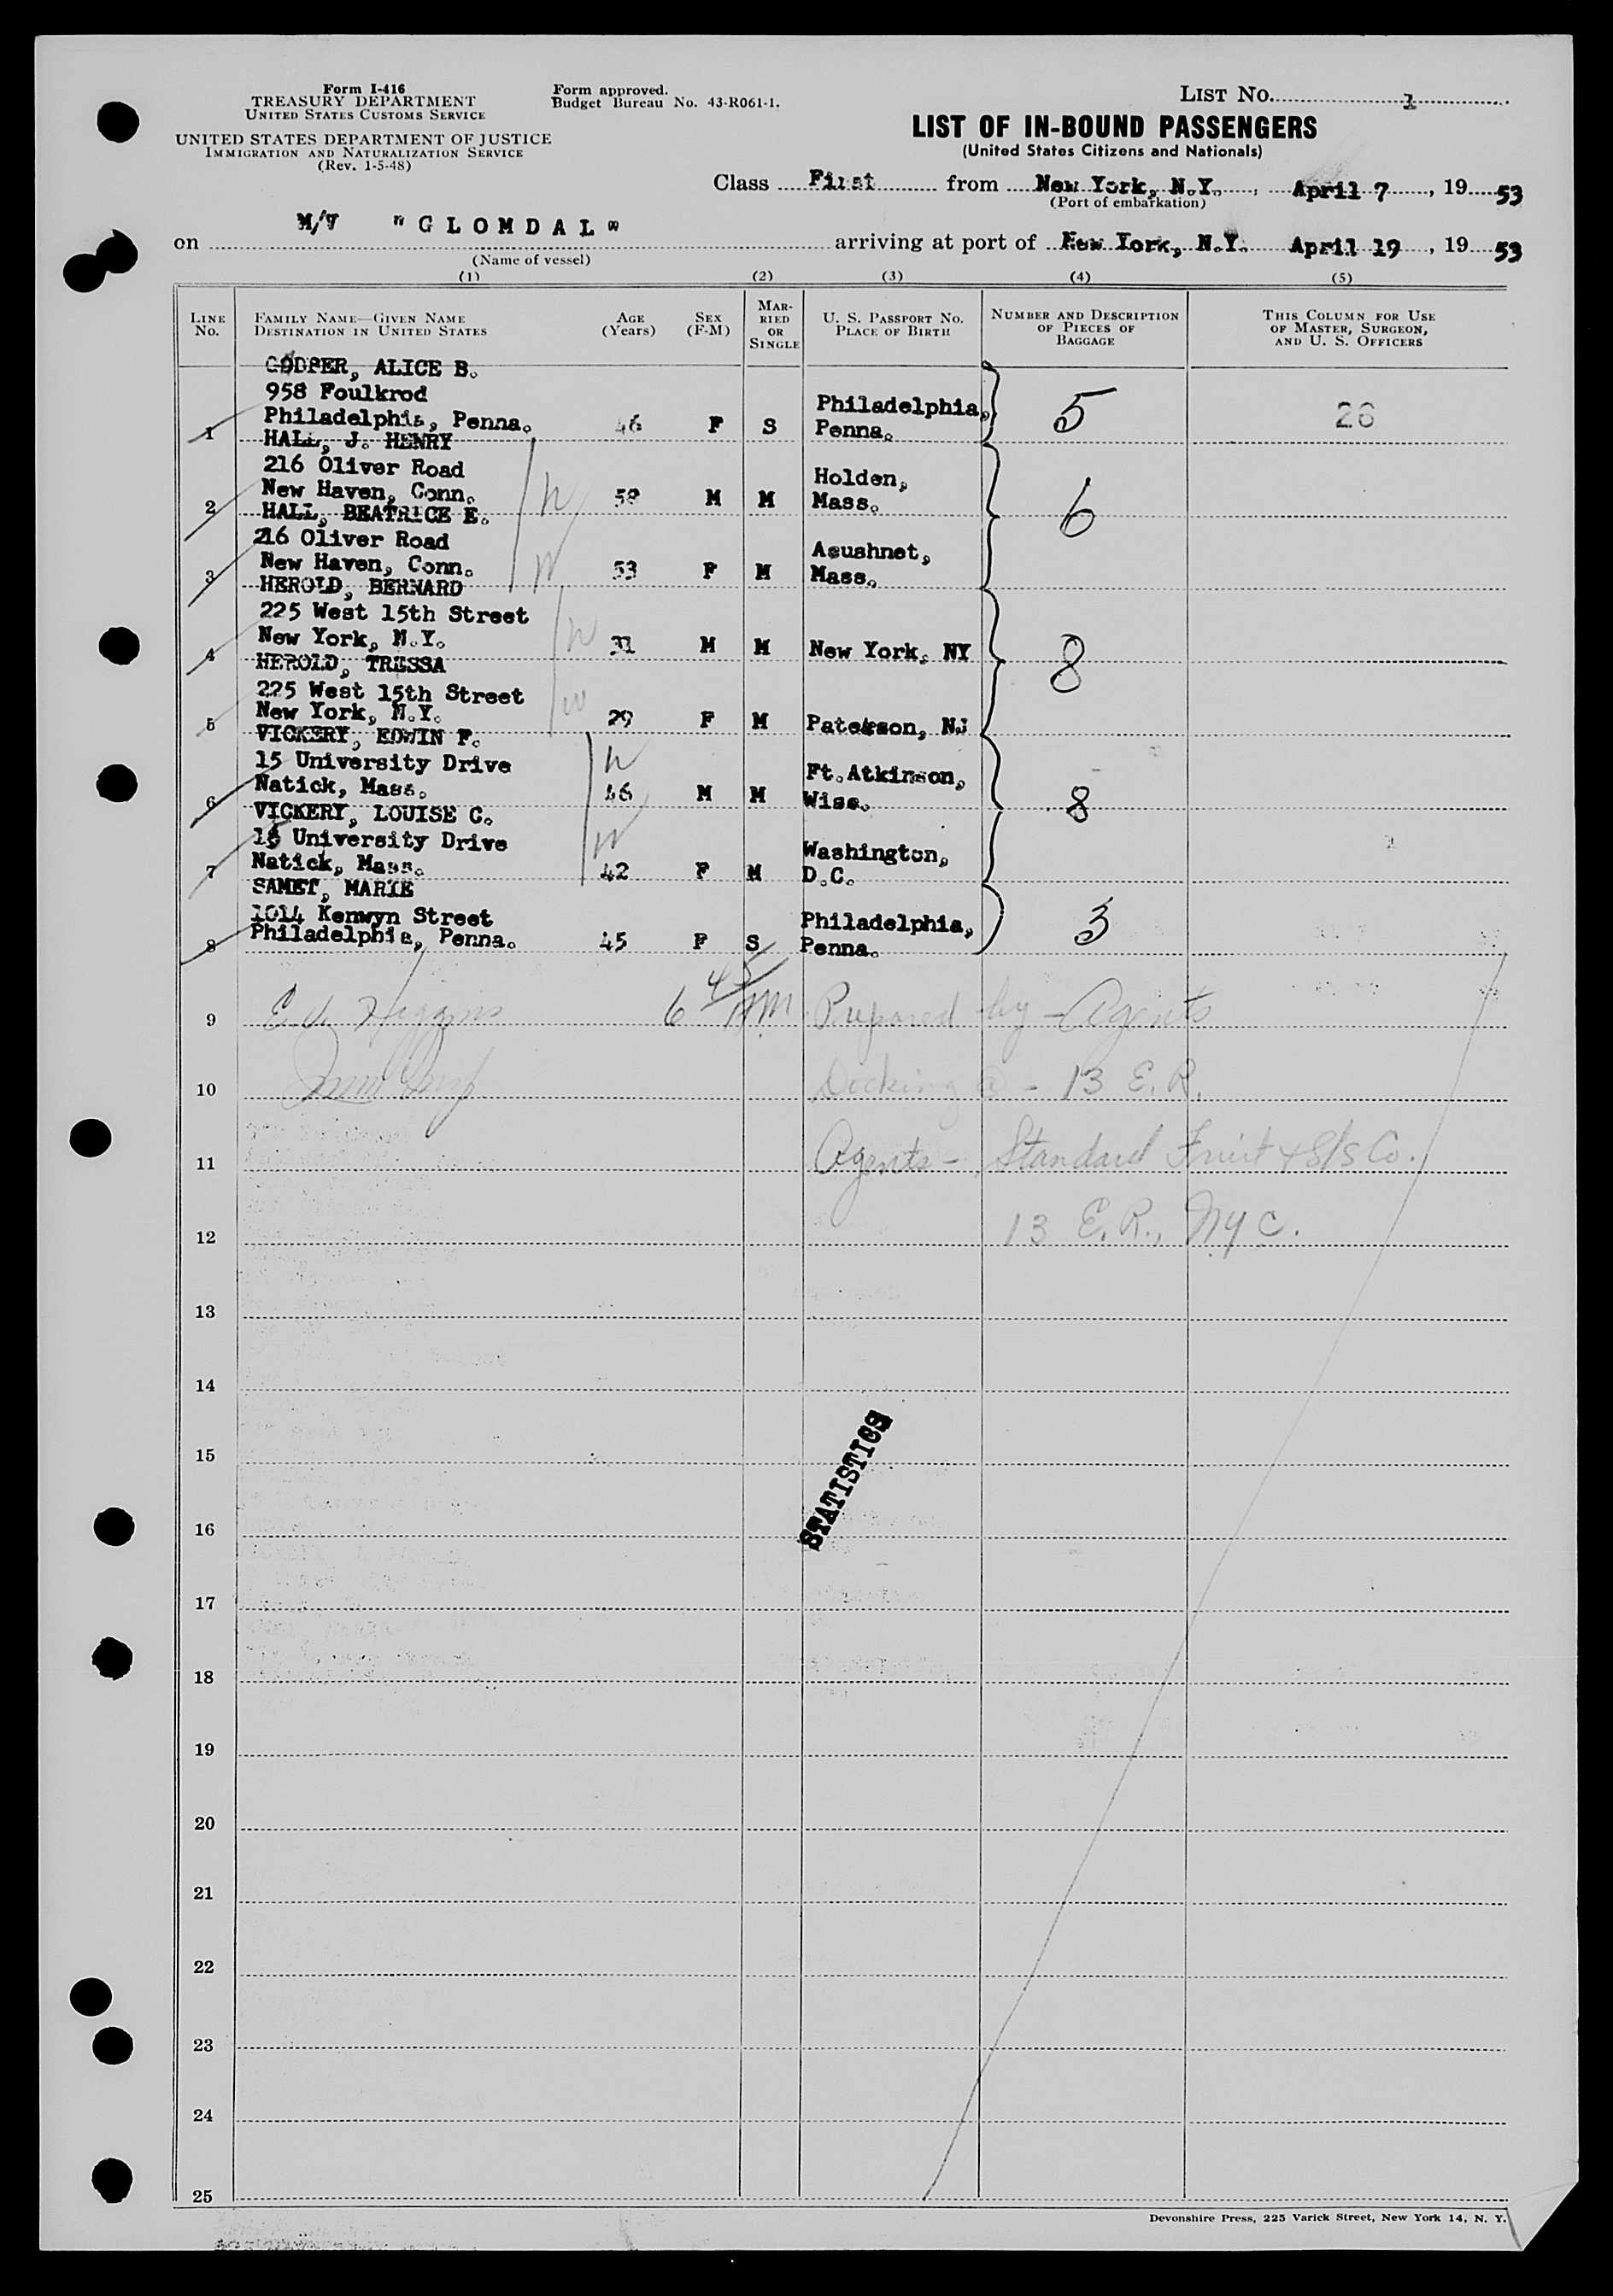 Form I-416
TREASURY DEPARTMENT
UNITED STATES CUSTOMS SERVICE
UNITED STATES DEPARTMENT OF JUSTICE
IMMIGRATION AND NATURALIZATION SERVICE
(Rev. 1-5-48)
Form approved.
Budget Bureau No. 43-R061-1.
LIST NO. 1
LIST OF IN-BOUND PASSENGERS
(United States Citizens and Nationals)
Class First from New York, N.Y., April 7, 19 53
(Port of embarkation)
on M/V "GLOMDAL" arriving at port of New York, N.Y. April 19, 19 53
(Name of vessel)
(1) (2) (3) (4) (5)
LINE NO. FAMILY NAME—GIVEN NAME DESTINATION IN UNITED STATES AGE (Years) SEX (F-M) MARRIED OR SINGLE U. S. PASSPORT NO. PLACE OF BIRTH NUMBER AND DESCRIPTION OF PIECES OF BAGGAGE THIS COLUMN FOR USE OF MASTER, SURGEON, AND U. S. OFFICERS
COOPER, ALICE B.
958 Foulkrod Philadelphia,
1 Philadelphia, Penna. 46 F S Penna. 5 26
HALL, J. HENRY
216 Oliver Road Holden,
2 New Haven, Conn. W 58 M M Mass. 6
HALL, BEATRICE E.
216 Oliver Road Acushnet,
3 New Haven, Conn. W 53 F M Mass.
HEROLD, BERNARD
225 West 15th Street
4 New York, N.Y. W 31 M M New York, NY 8
HEROLD, TRESSA
225 West 15th Street
5 New York, N.Y. W 29 F M Paterson, NJ
VICKERY, EDWIN F.
15 University Drive W Ft. Atkinson,
6 Natick, Mass. 46 M M Wisc. 8
VICKERY, LOUISE C.
15 University Drive W Washington,
7 Natick, Mass. 42 F M D.C.
SAMET, MARIE
1014 Kenwyn Street Philadelphia,
8 Philadelphia, Penna. 45 F S Penna. 3
9 E J Higgins 6 45/AM Prepared by - Agents
10 Imm Insp Docking @ - 13 E.R.
11 Agents - Standard Fruit & S/S Co.
12 13 E.R., NYC.
13
14
15
STATISTICS
16
17
18
19
20
21
22
23
24
25
Devonshire Press, 225 Varick Street, New York 14, N. Y.